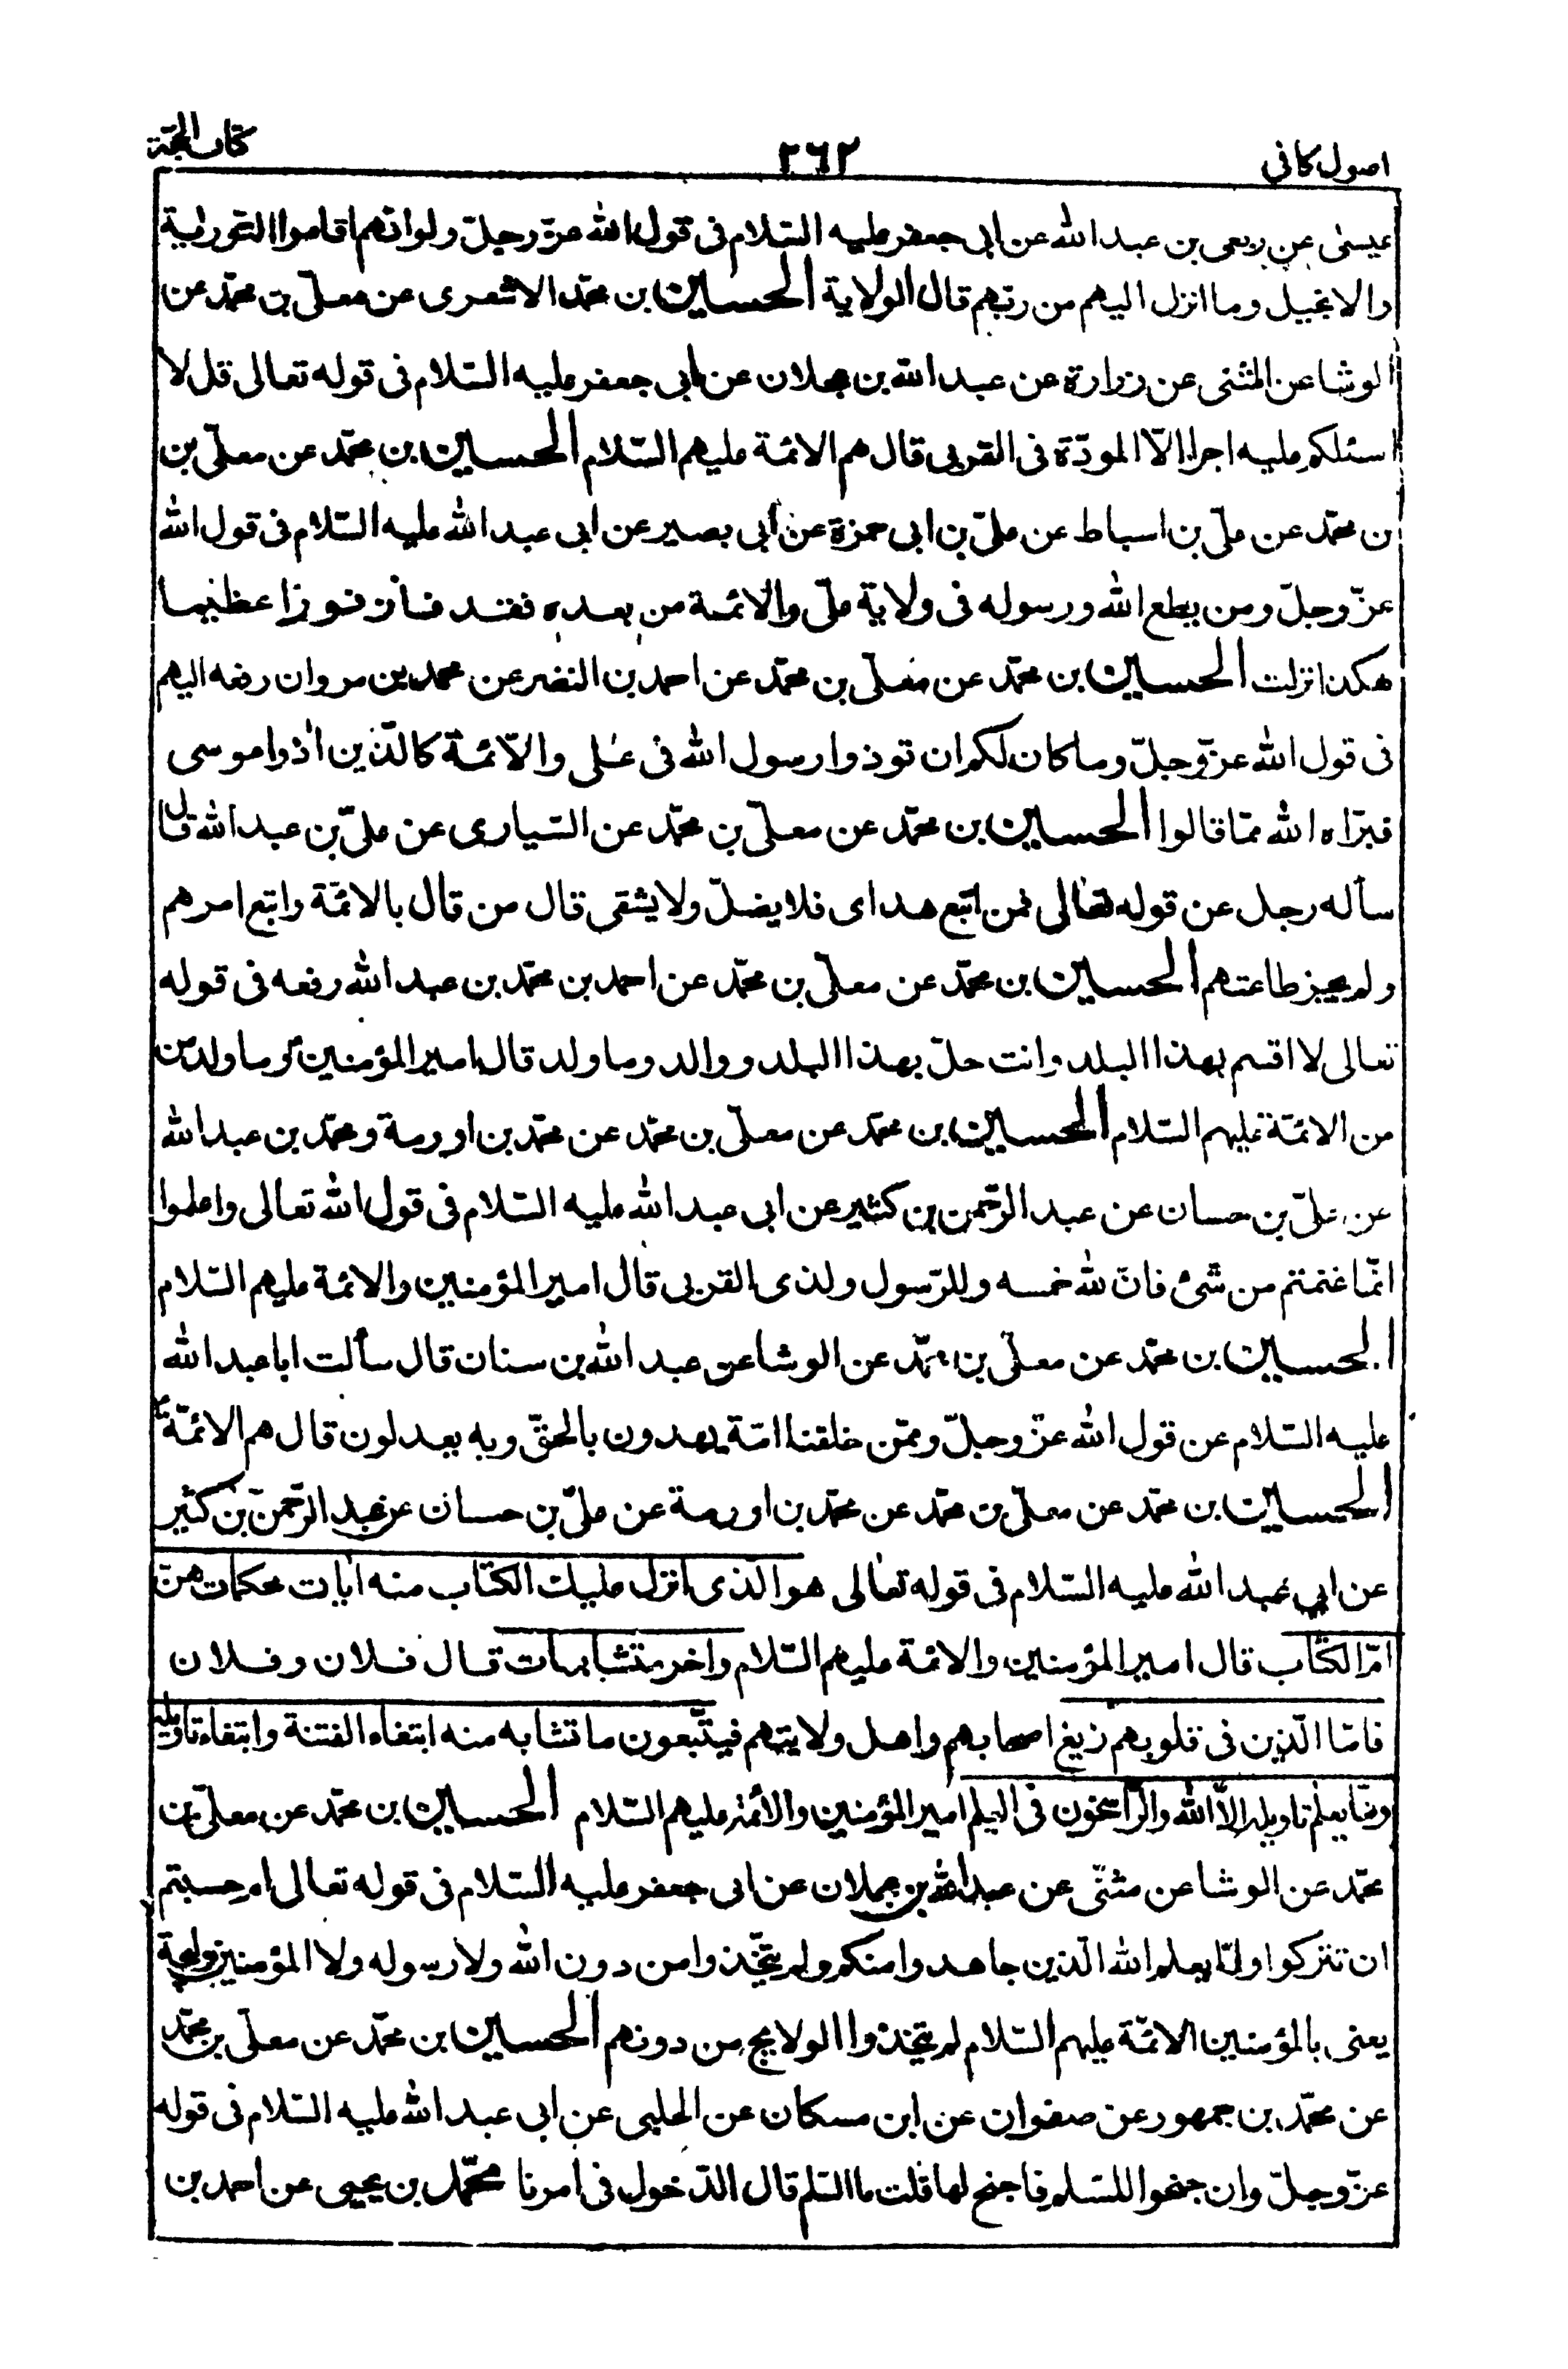 اصول كافي ٢٦٢ كتاب الحجّة
عيسى عن ربعى بن عبد الله عن ابى جعفر عليه السّلام فى قول الله عزّ وجلّ ولو انّهم اقاموا التّورٰية
والانجيل وما انزل اليهم من ربّهم قال الولاية الحسين بن محمّد الاشعرى عن معلّى بن محمّد عن
الوشا عن المثنى عن زرارة عن عبد الله بن عجلان عن ابى جعفر عليه السّلام فى قوله تعالى قل لا
اسئلكم عليه اجرا الّا المودّة فى القربى قال هم الائمة عليهم السّلام الحسين بن محمّد عن معلّى بن
ن محمّد عن علىّ بن اسباط عن علىّ بن ابى حمزة عن ابى بصير عن ابى عبد الله عليه السّلام فى قول الله
عزّ وجلّ ومن يطع الله ورسوله فى ولاية علىّ والائمة من بعده فقد فاز فوزا عظيما
هكذا نزلت الحسين بن محمّد عن معلّى بن محمّد عن احمد بن النضر عن محمد بن مروان رفعه اليهم
فى قول الله عزّ وجلّ وما كان لكم ان توذوا رسول الله فى على والائمة كالّذين اٰذوا موسى
فبرّاه الله ممّا قالوا الحسين بن محمّد عن معلّى بن محمّد عن السّيارى عن علىّ بن عبد الله قال
سأله رجل عن قوله تعالى فمن اتّبع هداى فلا يضلّ ولا يشقى قال من قال بالائمّة واتبع امرهم
ولم يجز طاعتهم الحسين بن محمّد عن معلّى بن محمّد عن احمد بن محمّد بن عبد الله رفعه فى قوله
تعالى لا اقسم بهذا البلد وانت حلّ بهذا البلد ووالد وما ولد قال امير المؤمنين وما ولد من
من الائمّة عليهم السّلام الحسين بن محمّد عن معلّى بن محمّد عن محمّد بن اورمة ومحمّد بن عبد الله
عن علىّ بن حسان عن عبد الرّحمن بن كثير عن ابى عبد الله عليه السّلام فى قول الله تعالى واعلموا
انّما غنمتم من شئ فانّ لله خمسه وللرّسول ولذى القربى قال امير المؤمنين والائمة عليهم السّلام
الحسين بن محمّد عن معلّى بن محمّد عن الوشا عن عبد الله بن سنان قال سألت ابا عبد الله
عليه السّلام عن قول الله عزّ وجلّ وممّن خلقنا امّة يهدون بالحقّ وبه يعدلون قال هم الائمّة ع
الحسين بن محمّد عن معلّى بن محمّد عن محمّد بن اورمة عن علىّ بن حسان عن عبد الرّحمن بن كثير
عن ابى عبد الله عليه السّلام فى قوله تعالى هو الّذى انزل عليك الكتاب منه اٰيات محكمات هنّ
امّ الكتاب قال امير المؤمنين والائمة عليهم السّلام واخر متشابهات قال فلان وفلان
فامّا الّذين فى قلوبهم زيغ اصحابهم واهل ولايتهم فيتّبعون ما تشابه منه ابتغاء الفتنة وابتغاء تاويله
وما يعلم تاويله الّا الله والرّاسخون فى العلم امير المؤمنين والائمّة عليهم السّلام الحسين بن محمّد عن معلّى بن
محمّد عن الوشا عن مثنّى عن عبد الله بن عجلان عن ابى جعفر عليه السّلام فى قوله تعالى ام حسبتم
ان تتركوا ولمّا يعلم الله الّذين جاهدوا منكم ولم يتّخذوا من دون الله ولا رسوله ولا المؤمنين وليجة
يعنى بالمؤمنين الائمّة عليهم السّلام لم يتّخذوا الولايج من دونهم الحسين بن محمّد عن معلّى بن محمّد
عن محمّد بن جمهور عن صفوان عن ابن مسكان عن الحلبى عن ابى عبد الله عليه السّلام فى قوله
عزّ وجلّ وان جنحوا للسّلم فاجنح لها قلت ما السّلم قال الدّخول فى امرنا محمّد بن يحيى عن احمد بن